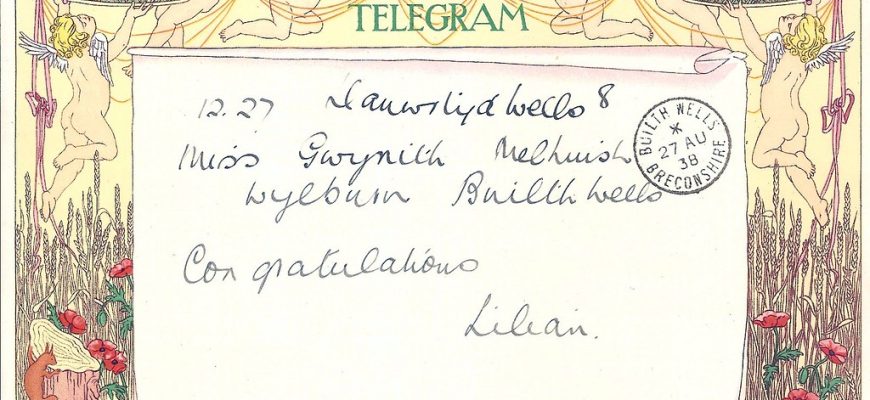 TELEGRAM
12.27 Llanwrtyd Wells 8
Miss Gwynith Melhuish
Wylburn Builth Wells
Congratulations
Lilian.
BUILTH WELLS
27 AU
38
BRECONSHIRE